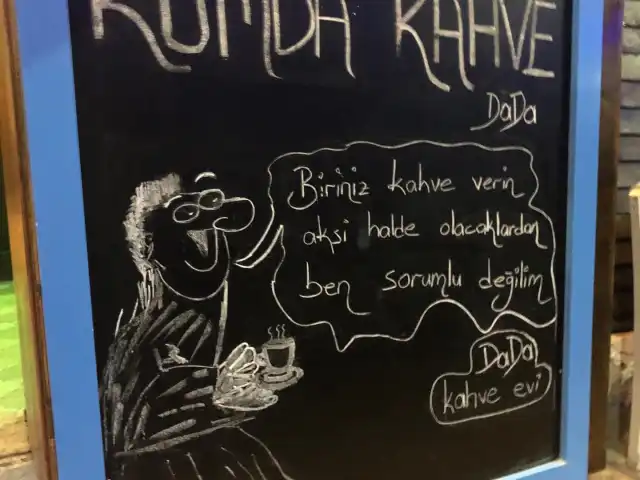 KUMDA KAHVE
DaDa
Biriniz kahve verin
aksi halde olacaklardan
ben sorumlu değilim
DaDa
kahve evi